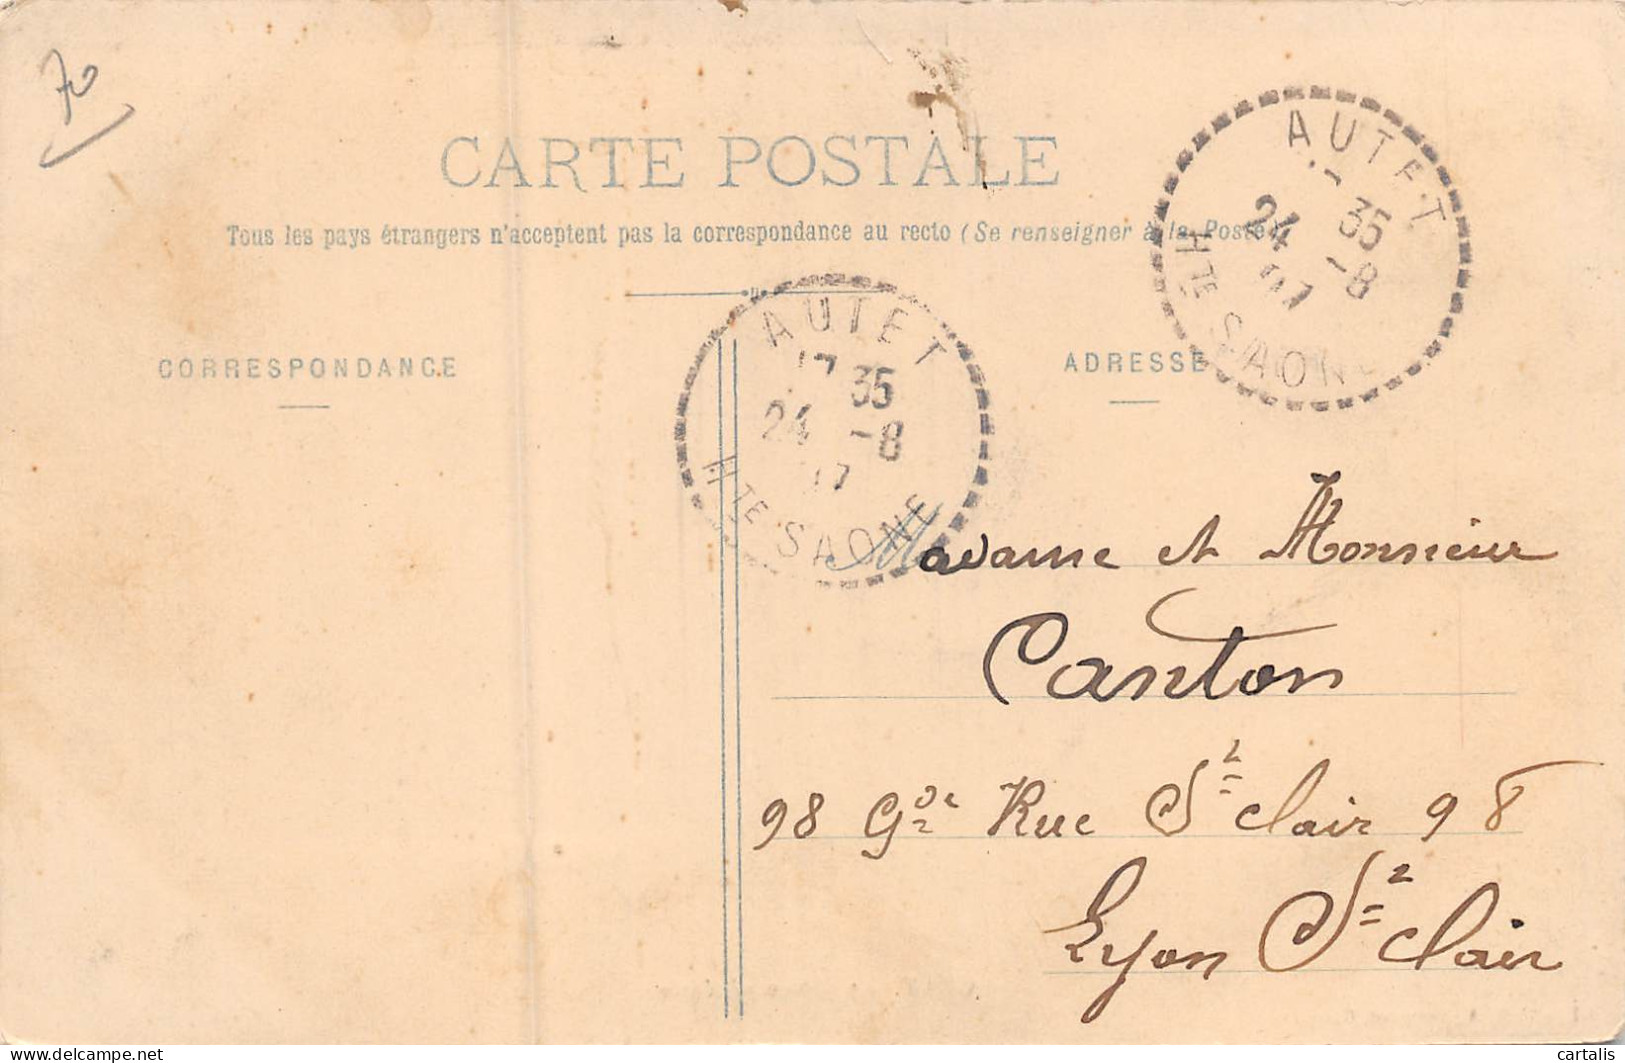 70
CARTE POSTALE
Tous les pays étrangers n'acceptent pas la correspondance au recto (Se renseigner à la Poste)
AUTET
35
24 -8
17
HTE SAONE
AUTET
17 35
24 -8
17
HTE SAONE
CORRESPONDANCE
ADRESSE
Madame et Monsieur
Canton
98 Gde Rue St Clair 98
Lyon St Clair
delcampe.net
cartalis